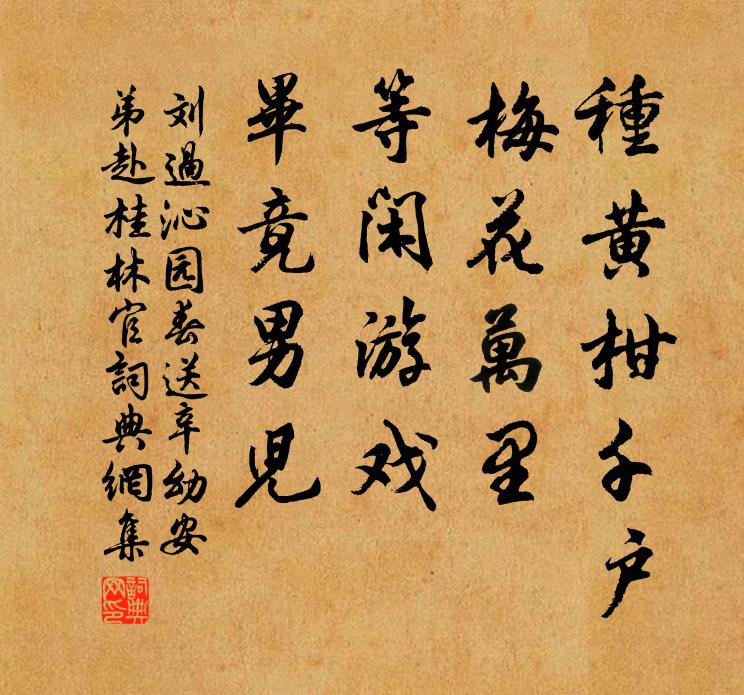 種黄柑千户
梅花萬里
等闲游戏
畢竟男児
刘過沁园春送辛幼安
弟赴桂林官詞典網集
詞典網印